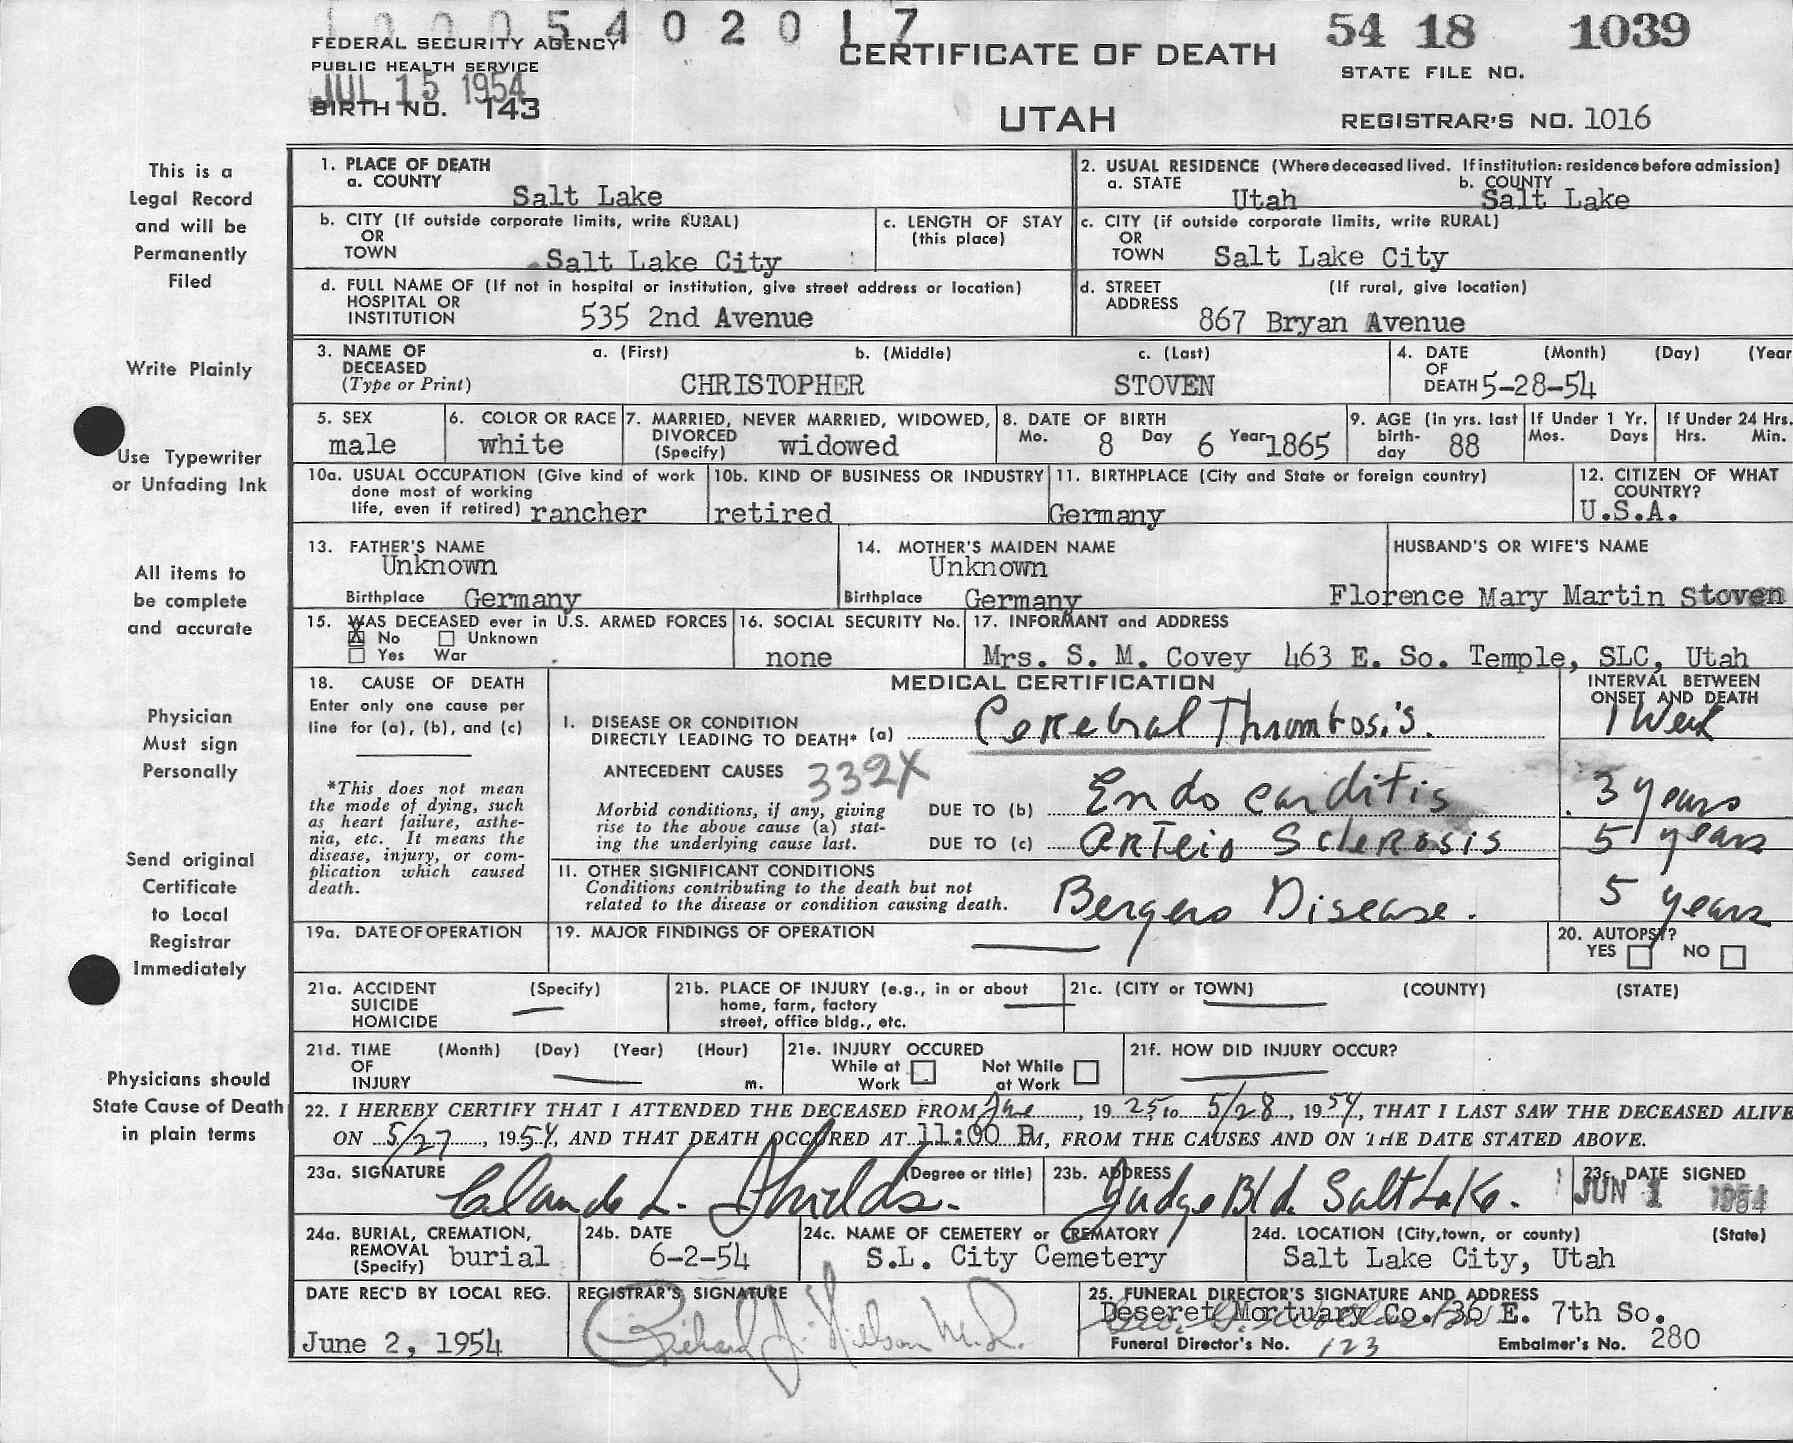 10005402017
54 18 1039
FEDERAL SECURITY AGENCY
PUBLIC HEALTH SERVICE
CERTIFICATE OF DEATH
STATE FILE NO.
JUL 15 1954
BIRTH NO. 143
UTAH
REGISTRAR'S NO. 1016
This is a
Legal Record
and will be
Permanently
Filed
Write Plainly
Use Typewriter
or Unfading Ink
All items to
be complete
and accurate
Physician
Must sign
Personally
Send original
Certificate
to Local
Registrar
Immediately
Physicians should
State Cause of Death
in plain terms
1. PLACE OF DEATH
a. COUNTY
Salt Lake
2. USUAL RESIDENCE (Where deceased lived. If institution: residence before admission)
a. STATE
Utah
b. COUNTY
Salt Lake
b. CITY (If outside corporate limits, write RURAL)
OR
TOWN
Salt Lake City
c. LENGTH OF STAY
(this place)
c. CITY (if outside corporate limits, write RURAL)
OR
TOWN
Salt Lake City
d. FULL NAME OF (If not in hospital or institution, give street address or location)
HOSPITAL OR
INSTITUTION
535 2nd Avenue
d. STREET
ADDRESS
(If rural, give location)
867 Bryan Avenue
3. NAME OF
DECEASED
(Type or Print)
a. (First)
b. (Middle)
c. (Last)
CHRISTOPHER
STOVEN
4. DATE
OF
DEATH
(Month) (Day) (Year
5-28-54
5. SEX
male
6. COLOR OR RACE
white
7. MARRIED, NEVER MARRIED, WIDOWED,
DIVORCED
(Specify)
widowed
8. DATE OF BIRTH
Mo. 8 Day 6 Year 1865
9. AGE (in yrs. last
birth-
day
88
If Under 1 Yr.
Mos. Days
If Under 24 Hrs.
Hrs. Min.
10a. USUAL OCCUPATION (Give kind of work
done most of working
life, even if retired) rancher
10b. KIND OF BUSINESS OR INDUSTRY
retired
11. BIRTHPLACE (City and State or foreign country)
Germany
12. CITIZEN OF WHAT
COUNTRY?
U.S.A.
13. FATHER'S NAME
Unknown
Birthplace Germany
14. MOTHER'S MAIDEN NAME
Unknown
Birthplace Germany
HUSBAND'S OR WIFE'S NAME
Florence Mary Martin Stoven
15. WAS DECEASED ever in U.S. ARMED FORCES
X No Unknown
Yes War
16. SOCIAL SECURITY No.
none
17. INFORMANT and ADDRESS
Mrs. S. M. Covey 463 E. So. Temple, SLC, Utah
18. CAUSE OF DEATH
Enter only one cause per
line for (a), (b), and (c)
*This does not mean
the mode of dying, such
as heart failure, asthe-
nia, etc. It means the
disease, injury, or com-
plication which caused
death.
MEDICAL CERTIFICATION
INTERVAL BETWEEN
ONSET AND DEATH
I. DISEASE OR CONDITION
DIRECTLY LEADING TO DEATH* (a) Cerebral Thrombosis.
1 Week
ANTECEDENT CAUSES 332X
Morbid conditions, if any, giving
rise to the above cause (a) stat-
ing the underlying cause last.
DUE TO (b) Endo carditis
3 years
DUE TO (c) Arterio Sclerosis
5 years
II. OTHER SIGNIFICANT CONDITIONS
Conditions contributing to the death but not
related to the disease or condition causing death.
Bergers Disease.
5 years
19a. DATE OF OPERATION
19. MAJOR FINDINGS OF OPERATION
20. AUTOPSY?
YES NO
21a. ACCIDENT
SUICIDE
HOMICIDE
(Specify)
21b. PLACE OF INJURY (e.g., in or about
home, farm, factory
street, office bldg., etc.
21c. (CITY or TOWN) (COUNTY) (STATE)
21d. TIME
OF
INJURY
(Month) (Day) (Year) (Hour)
m.
21e. INJURY OCCURED
While at
Work
Not While
at Work
21f. HOW DID INJURY OCCUR?
22. I HEREBY CERTIFY THAT I ATTENDED THE DECEASED FROM , 1925, to 5/28, 1954, THAT I LAST SAW THE DECEASED ALIVE
ON 5/27, 1954, AND THAT DEATH OCCURED AT 11:00 P M, FROM THE CAUSES AND ON THE DATE STATED ABOVE.
23a. SIGNATURE
(Degree or title)
Claude L. Shields.
23b. ADDRESS
Judge Bld. Salt Lake.
23c. DATE SIGNED
JUN 1 1954
24a. BURIAL, CREMATION,
REMOVAL
(Specify)
burial
24b. DATE
6-2-54
24c. NAME OF CEMETERY or CREMATORY
S.L. City Cemetery
24d. LOCATION (City, town, or county) (State)
Salt Lake City, Utah
DATE REC'D BY LOCAL REG.
June 2, 1954
REGISTRAR'S SIGNATURE
Richard J. Nielson M.D.
25. FUNERAL DIRECTOR'S SIGNATURE AND ADDRESS
Deseret Mortuary Co. 36 E. 7th So.
Funeral Director's No. 123
Embalmer's No. 280